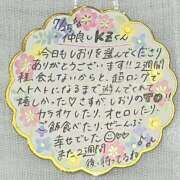 7/25
仲良しKくん
今日もしおりを選んでくださり
ありがとうございます!!2週間
程会えないからと、超ロングで
ヘトヘトになるまで遊んでくれて
嬉しかったですよ
カラオケしたり、オセロしたり
ご飯食べたり、ぜーんぶ
幸せでした
また2週間
後、待ってるね